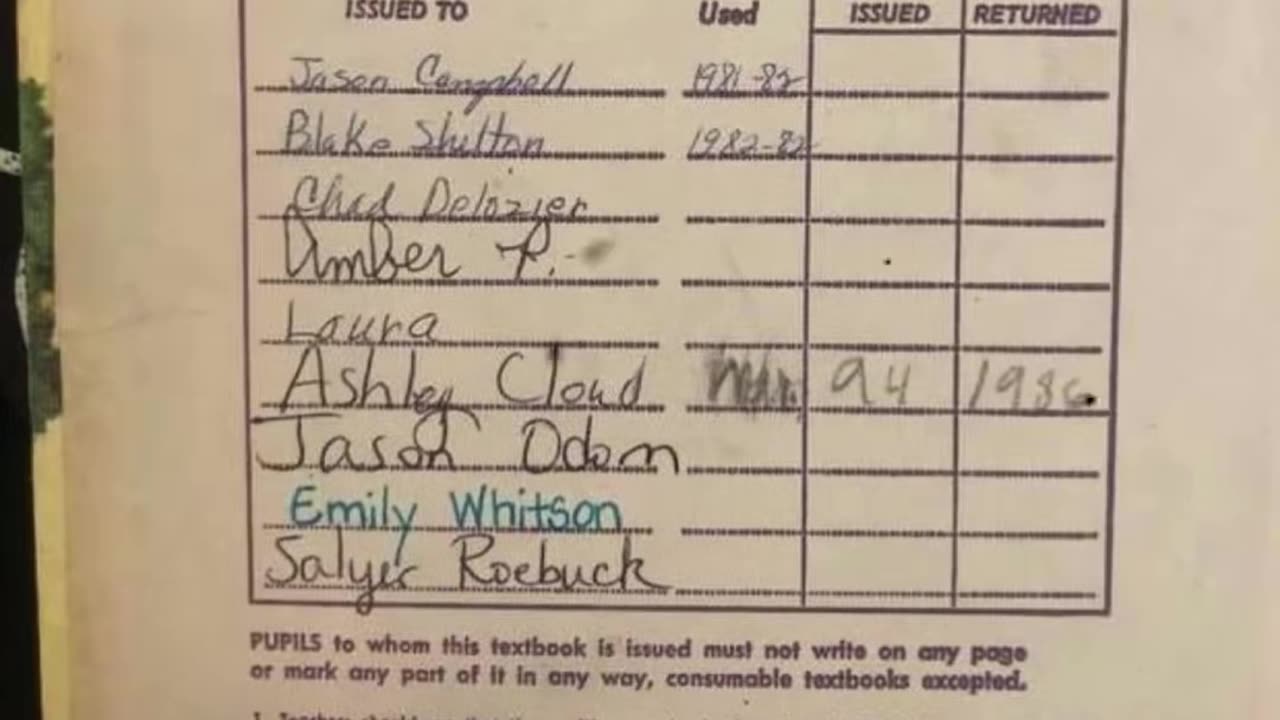 ISSUED TO Used ISSUED RETURNED
Jason Campbell 1981-82
Blake Shilton 1982-82
Chad Delozier
Amber P.
Laura
Ashley Cloud 94 1986
Jason Odom
Emily Whitson
Salyer Roebuck
PUPILS to whom this textbook is issued must not write on any page
or mark any part of it in any way, consumable textbooks excepted.